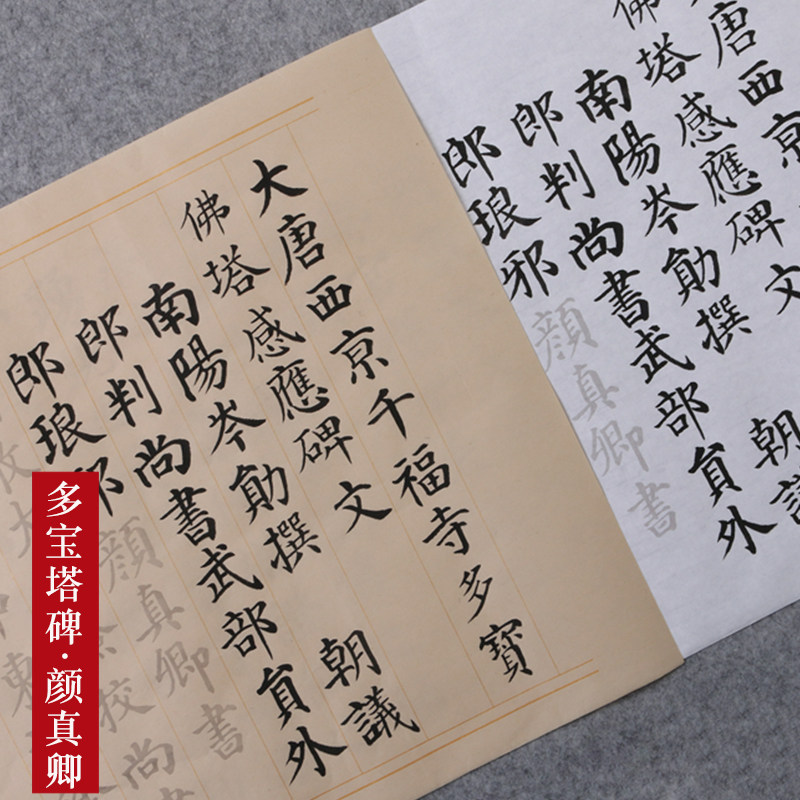 大唐西京千福寺多寶
佛塔感應碑文
南陽岑勛撰 朝議
郎判尚書武部員外
郎琅邪顏真卿書
校尚
唐西京
佛塔感應碑文
南陽岑勛撰 朝議
郎判尚書武部員外
郎琅邪顏真卿書
多宝塔碑·颜真卿